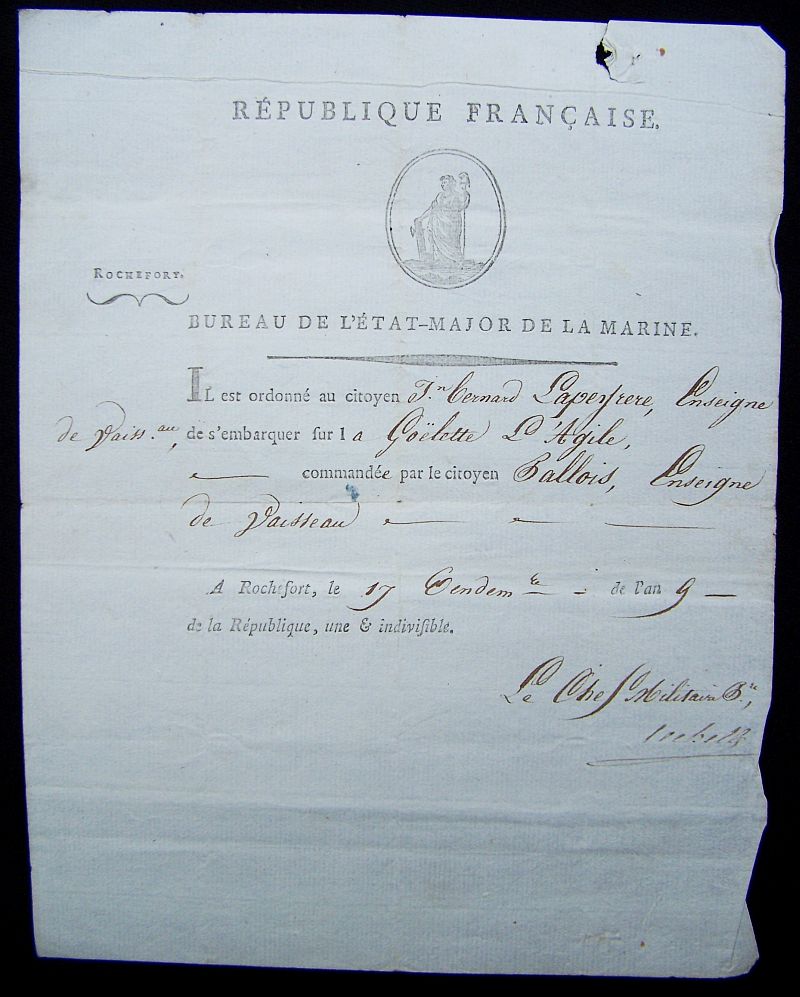 RÉPUBLIQUE FRANÇAISE.
ROCHEFORT.
BUREAU DE L'ÉTAT-MAJOR DE LA MARINE.
IL est ordonné au citoyen J.n Bernard Lapeyrere, Enseigne
de Vaiss.au, de s'embarquer sur la Goëlette L'Agile,
commandée par le citoyen Ballois, Enseigne
de Vaisseau
A Rochefort, le 17 Vendem.re de l'an 9
de la République, une & indiviſible.
Le Chef Militaire